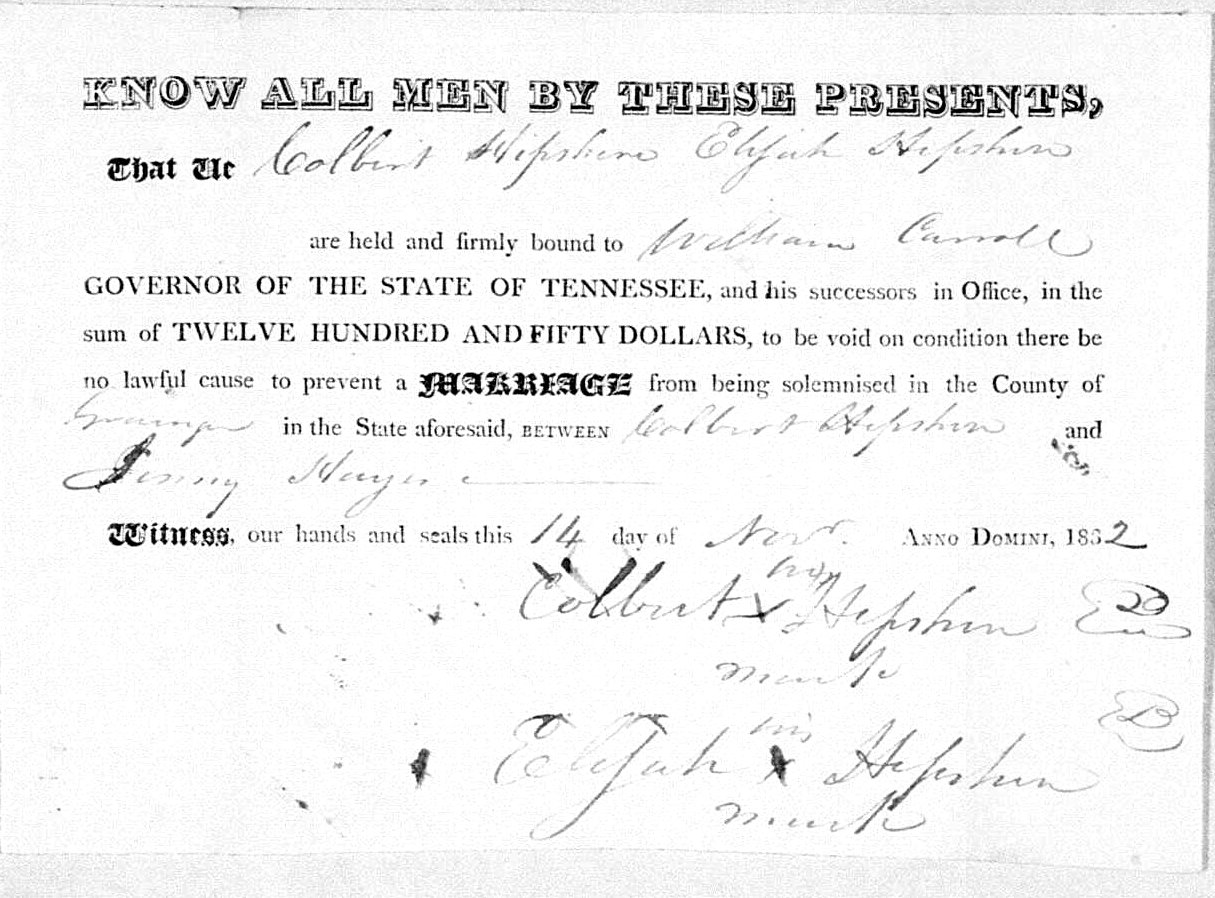 KNOW ALL MEN BY THESE PRESENTS,
That We Colbert Hipshire Elijah Hipshire
are held and firmly bound to William Carroll
GOVERNOR OF THE STATE OF TENNESSEE, and his successors in Office, in the
sum of TWELVE HUNDRED AND FIFTY DOLLARS, to be void on condition there be
no lawful cause to prevent a MARRIAGE from being solemnised in the County of
Grainger in the State aforesaid, BETWEEN Colbert Hipshire and
Jenny
Witness, our hands and seals this 14 day of Novr. ANNO DOMINI, 1832
his
Colbert x Hepshire
mark
his
Elijah x Hepshire
mark